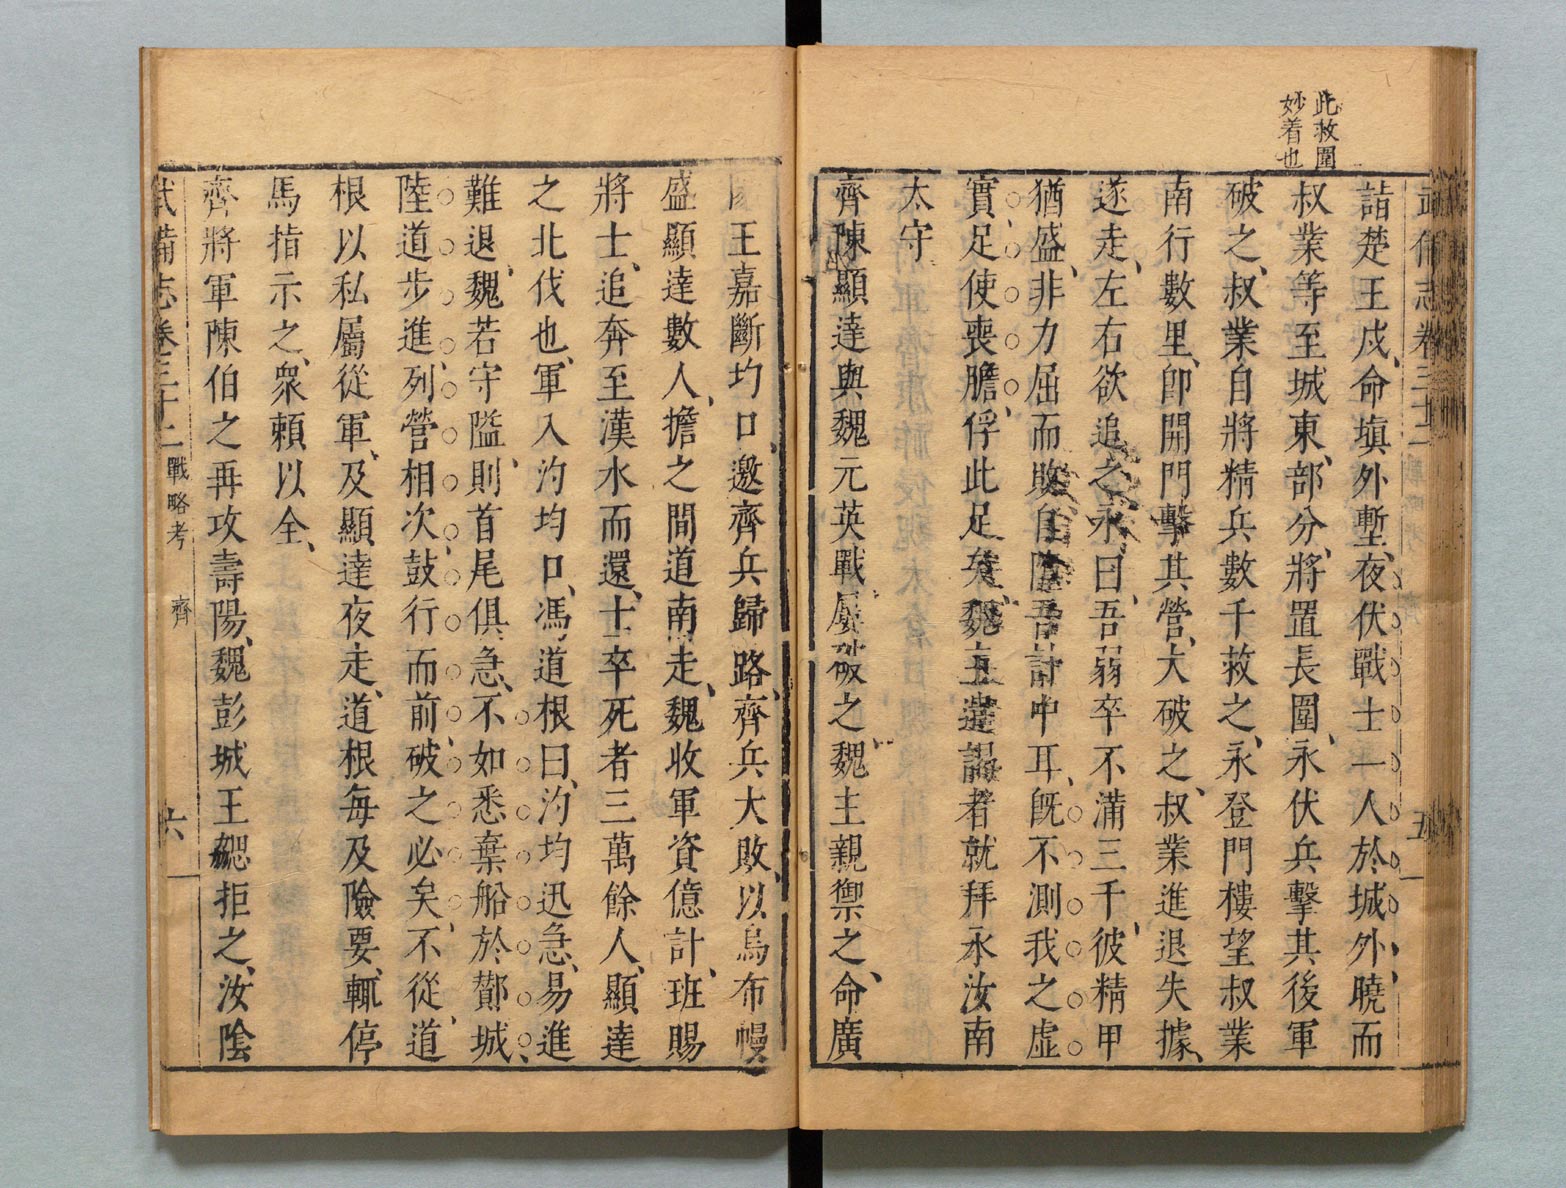 此救圍
妙着也
武備志卷三十二
五
詣楚王戍、命填外塹、夜伏戰士一人於城外、曉而
叔業等至城東、部分、將置長圍、永伏兵擊其後軍
破之、叔業自將精兵數千救之、永登門樓望叔業
南行數里、卽開門擊其營、大破之、叔業進退失據、
遂走、左右欲追之、永曰、吾弱卒不滿三千、彼精甲
猶盛、非力屈而敗、自墮吾計中耳、旣不測我之虛
實、足使喪膽、俘此足矣、魏主遣謁者就拜永汝南
太守
齊陳顯達與魏元英戰、屢破之、魏主親禦之、命廣
王嘉斷均口、邀齊兵歸路、齊兵大敗、以烏布幔
盛顯達數人、擔之間道南走、魏收軍資億計、班賜
將士、追奔至漢水而還、士卒死者三萬餘人、顯達
之北伐也、軍入汮均口、馮道根曰、汮均迅急、易進
難退、魏若守隘、則首尾俱急、不如悉棄船於酇城、
陸道步進、列營相次、鼓行而前、破之必矣、不從、道
根以私屬從軍、及顯達夜走、道根每及險要、輒停
馬指示之、衆賴以全、
齊將軍陳伯之再攻壽陽、魏彭城王勰拒之、汝陰
武備志卷三十二 戰略考 齊
六